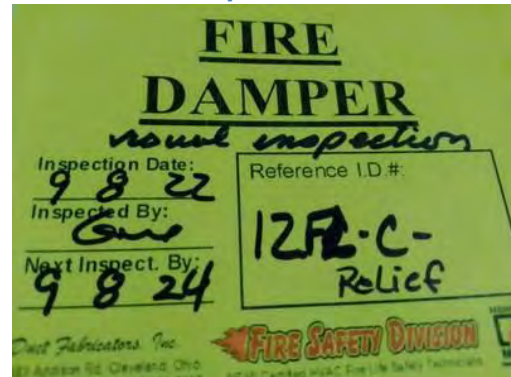 FIRE
DAMPER
visual inspection
Inspection Date:
9 8 22
Inspected By:
Next Inspect. By:
9 8 24
Reference I.D.#:
12FL-C-
Relief
Duct Fabricators, Inc.
Addison Rd. Cleveland, Ohio
FIRE SAFETY DIVISION
Certified HVAC Fire Life Safety Technicians